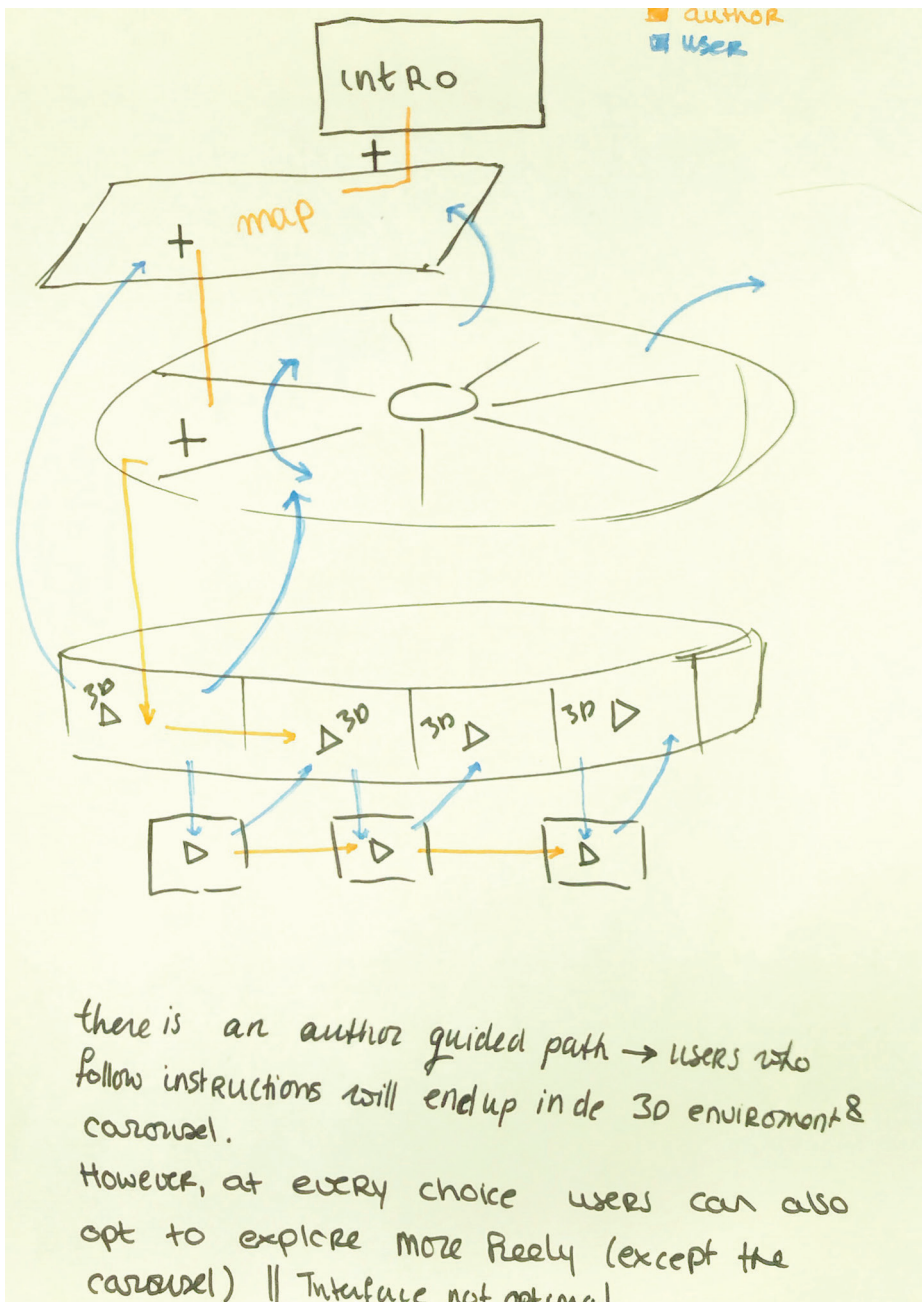 author
user
intro
+
map
+
+
3D
3D
3D
3D
there is an author guided path → users who
follow instructions will end up in de 3D enviroment &
carousel.
However, at every choice users can also
opt to explore more freely (except the
carousel) || Interface not optimal